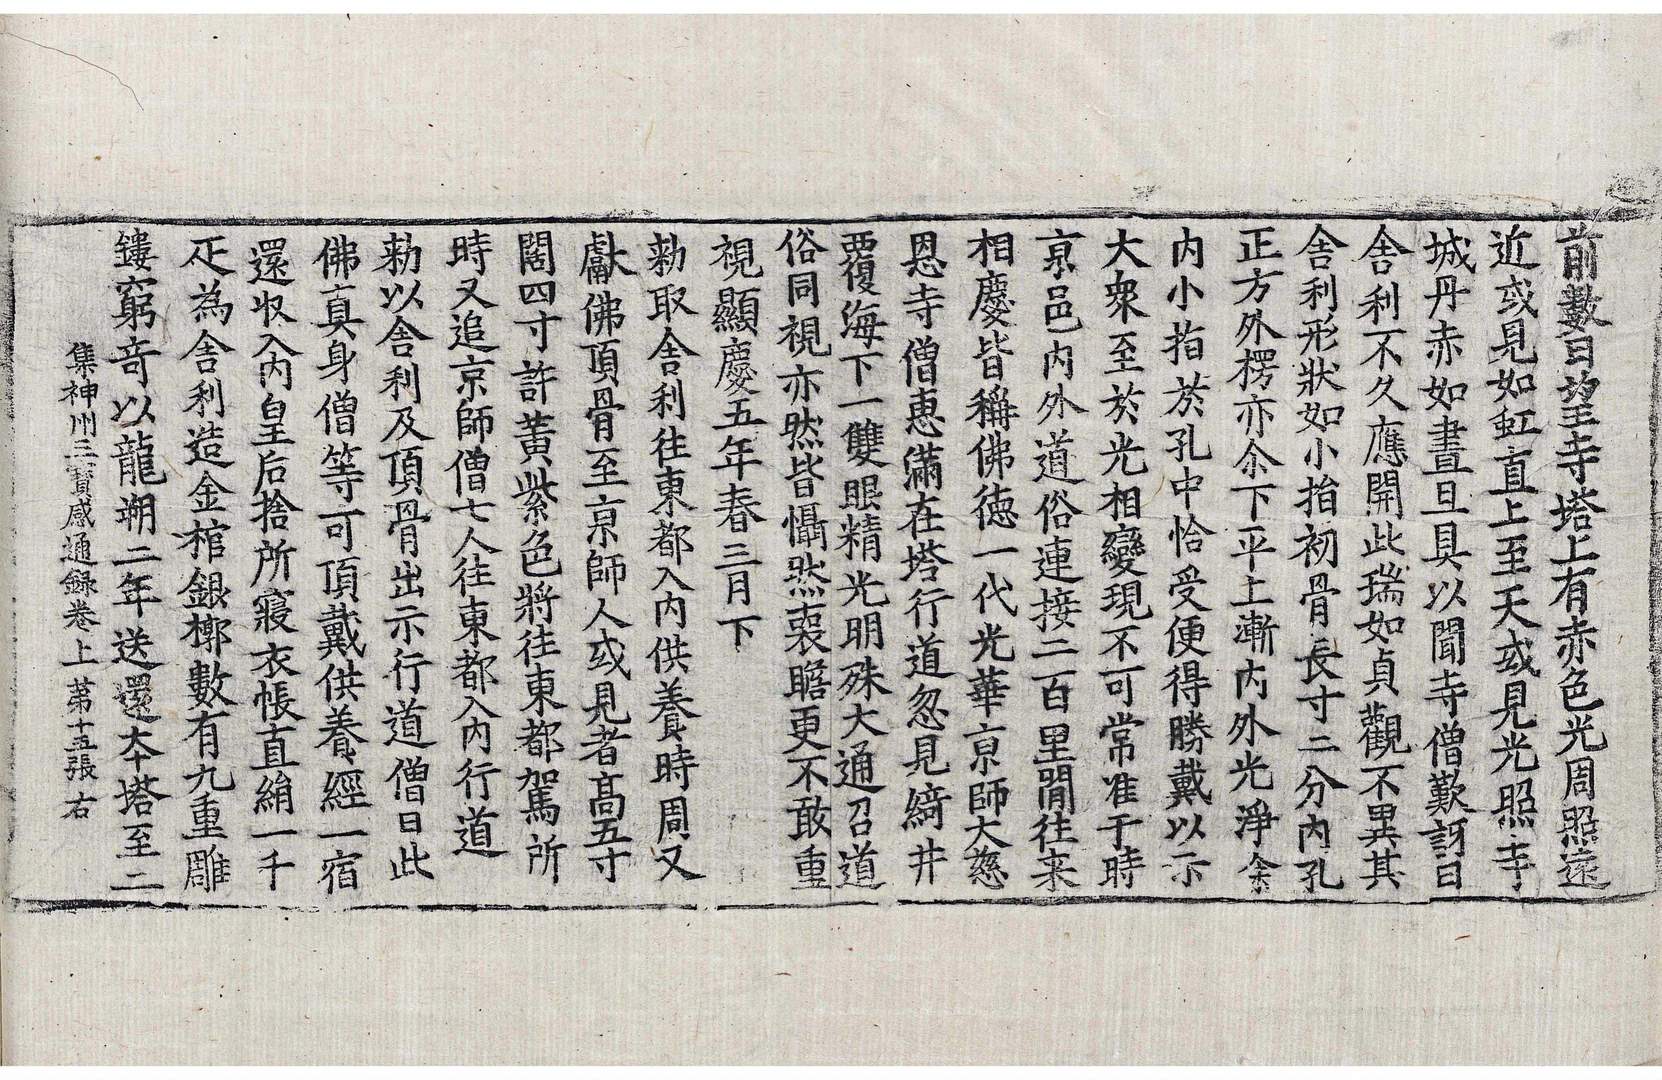 前數日望寺塔上有赤色光周照遠
近或見如虹直上至天或見光照寺
城丹赤如晝旦具以聞寺僧歎訝曰
舍利不久應開此瑞如貞觀不異其
舍利形狀如小指初骨長寸二分內孔
正方外楞亦尒下平上漸內外光淨余
內小指於孔中恰受便得勝戴以示
大衆至於光相變現不可常准于時
京邑內外道俗連接二百里閒往来
相慶皆稱佛徳一代光華京師大慈
恩寺僧惠滿在塔行道忽見綺井
覆海下一雙眼精光明殊大通召道
俗同視亦然皆懾然喪瞻更不敢重
視顯慶五年春三月下
勑取舍利往東都入內供養時周又
獻佛頂骨至京師人或見者高五寸
闊四寸許黃紫色將往東都駕所
時又追京師僧七人往東都入內行道
勑以舍利及頂骨出示行道僧曰此
佛真身僧等可頂戴供養經一宿
還収入內皇后捨所寢衣帳直絹一千
疋為舍利造金棺銀槨數有九重雕
鏤窮竒以龍朔二年送還本塔至二
集神州三寶感通録卷上 第十五張 右